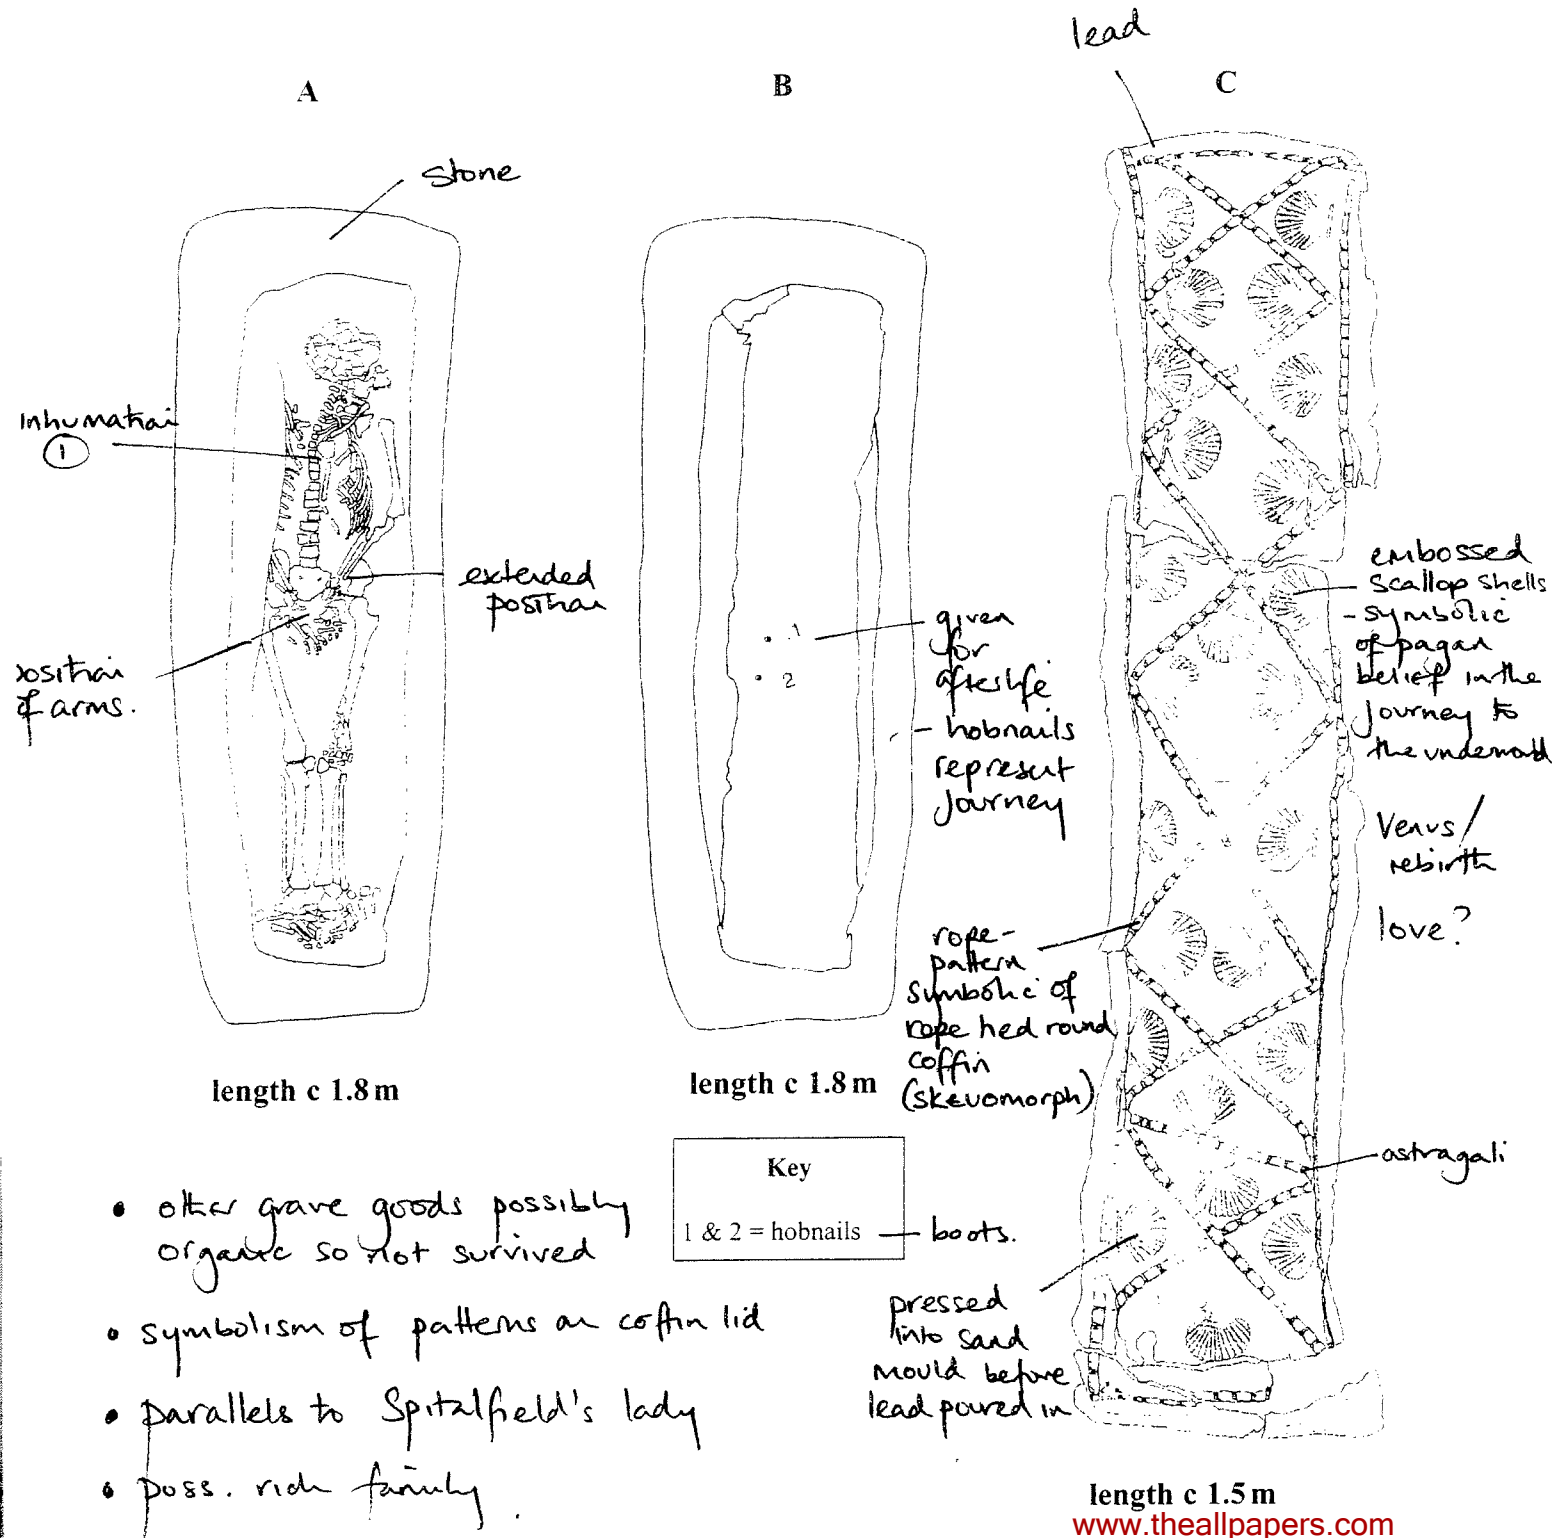 lead
A
B
C
Stone
Inhumation
1
extended
position
position
of arms.
1
2
given
for
afterlife.
- hobnails
represent
journey
embossed
scallop shells
- symbolic
of pagan
belief in the
journey to
the underworld
Venus /
rebirth
love?
rope-
pattern
symbolic of
rope tied round
coffin
(skeuomorph)
astragali
pressed
into sand
mould before
lead poured in
length c 1.8 m
length c 1.8 m
length c 1.5 m
Key
1 & 2 = hobnails — boots.
• other grave goods possibly
organic so not survived
• symbolism of patterns on coffin lid
• parallels to Spitalfield's lady
• poss. rich family.
www.theallpapers.com